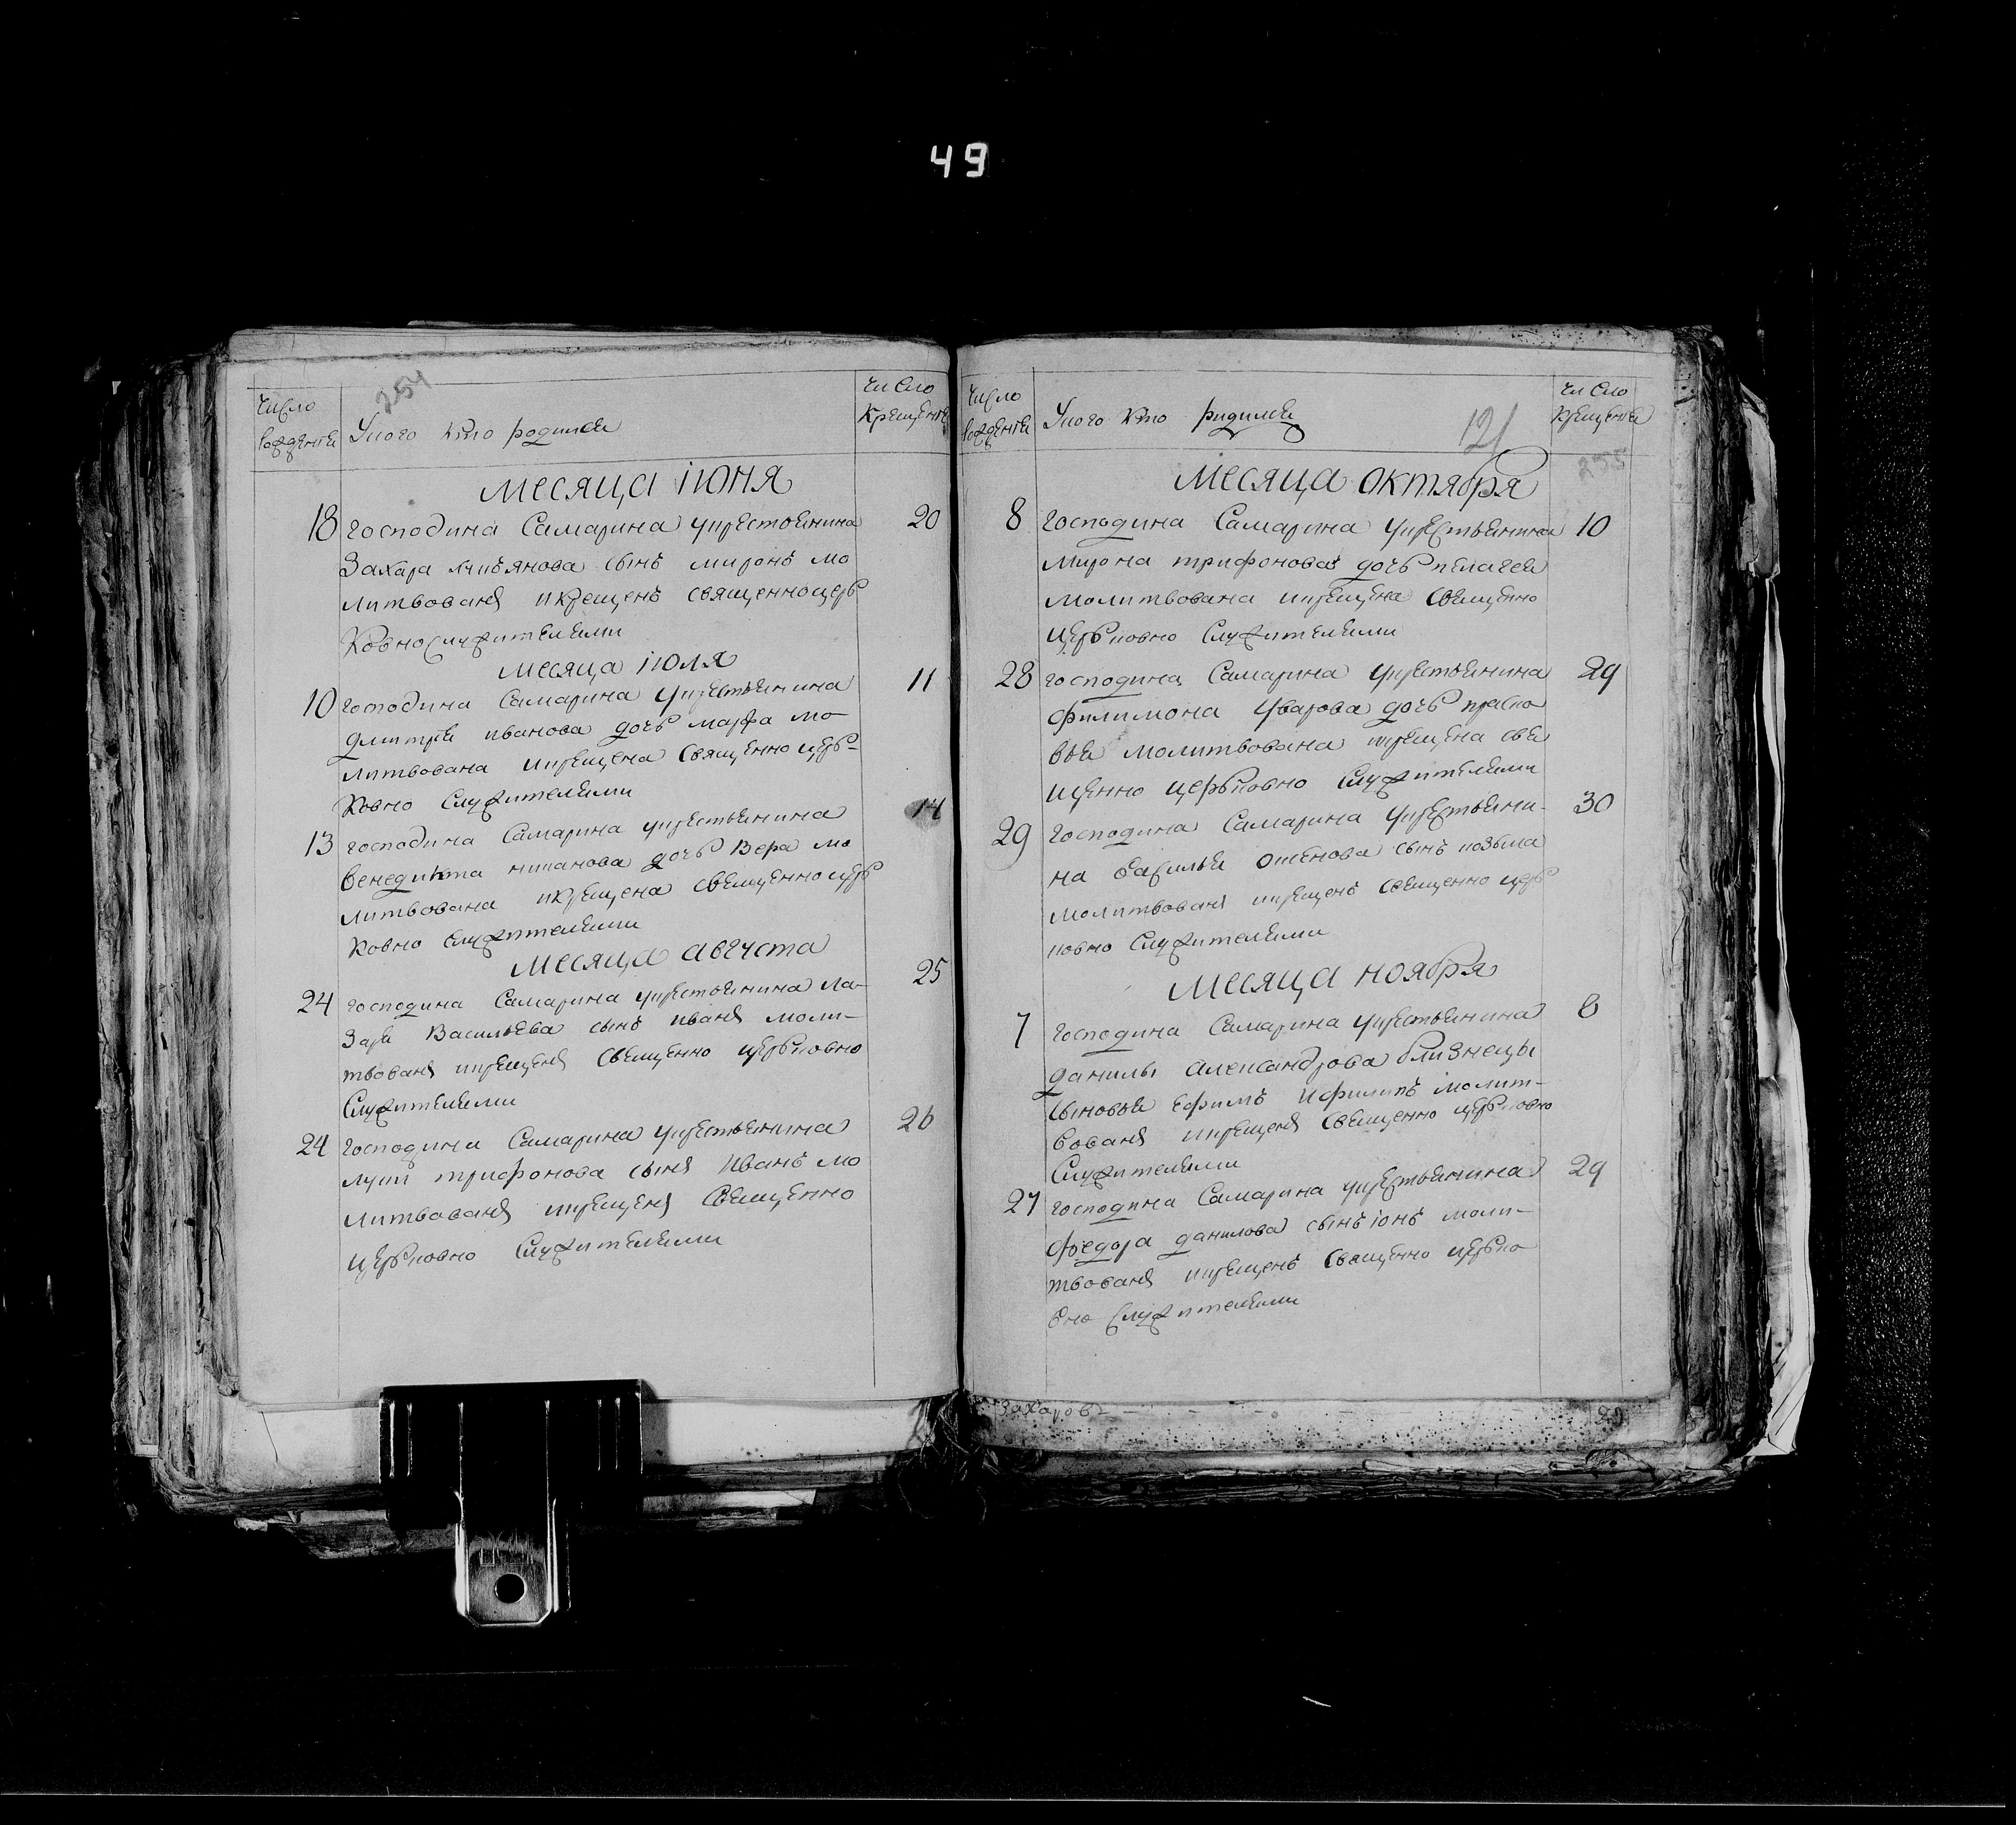 49
254
число рожденiя
Укого кто родилси
число крещенiя
месяца iюня
18 господина Самарина укрестьянина 20
Захара сынъ миронъ мо
литвованъ икрещенъ священноцерь
ковнослужителями
месяца iюля
10 господина Самарина укрестьянина 11
дмитрея иванова дочь марфа мо-
литвована икрещена священно церь-
ковно служителями
13 господина Самарина укрестьянина 14
венедикта дочь Вера мо
литвована икрещена свещенно церь
ковно служителями
месяца августа
24 господина Самарина укрестьянина ла- 25
заря Васильева сынъ иванъ моли-
твованъ икрещенъ свещенно церьковно
служителями
24 господина Самарина укрестьянина 26
луки трифонова сынъ Иванъ мо
литвованъ икрещенъ свещенно
церьковно служителями
число рожденiя
Укого кто родилси
число крещенiя
121
255
месяца октября
8 господина Самарина укрестьянина 10
мирона трифонова дочь пелагея
молитвована икрещена свещенно
церьковно служителями
28 господина Самарина укрестьянина 29
филимона Уварова дочь праско
вья молитвована икрещена све
щенно церьковно служителями
29 господина Самарина укрестьяни- 30
на василья сынъ козьма
молитвованъ икрещенъ свещенно церь
ковно служителями
месяца ноября
7 господина Самарина укрестьянина 8
данилы александрова близнецы
сыновья ефимъ ифилипъ молит-
вованъ икрещенъ свещенно церьковно
служителями
27 господина Самарина укрестьянина 29
федора данилова сынъ iонъ моли-
твованъ икрещенъ священно церько
вно служителями
Захаровъ